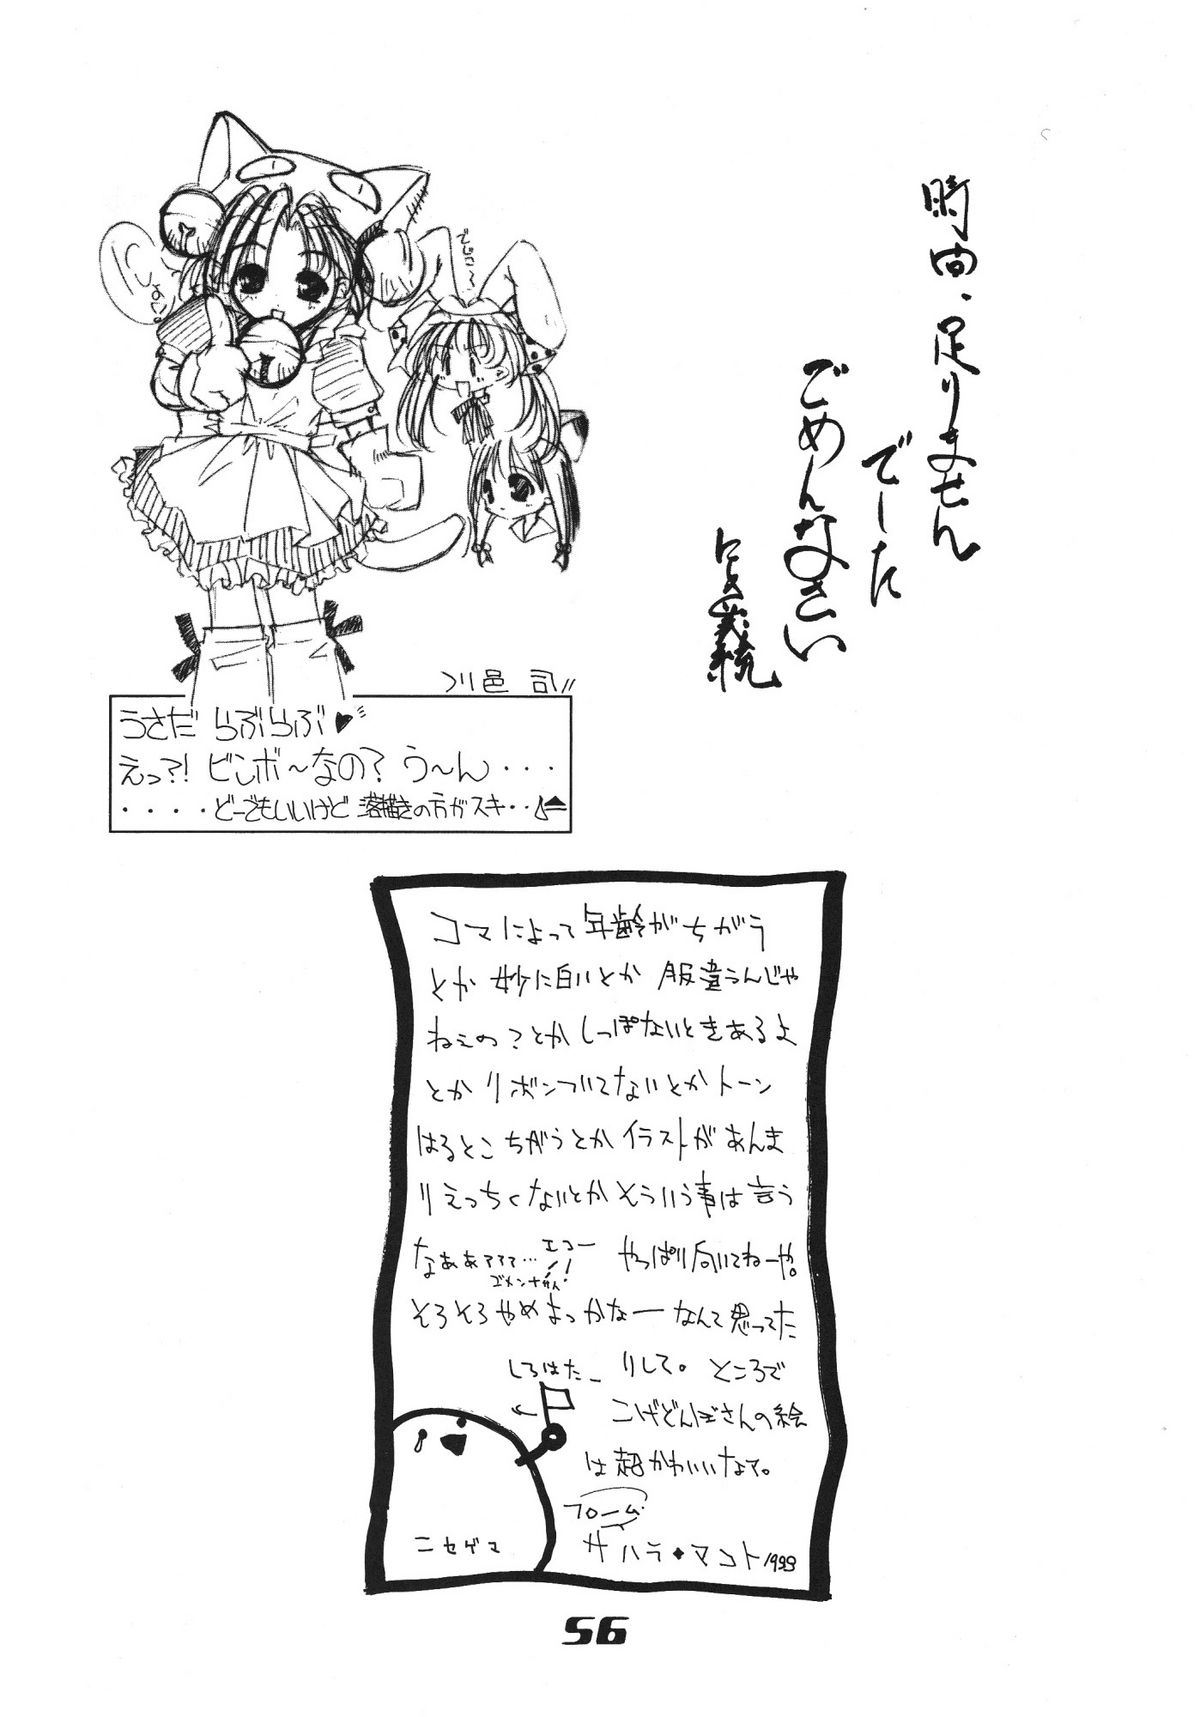 時間、足りません
でーした
ごめんなさい
にょ
でじこ〜
川邑 司
うさだ らぶらぶ♥
えっ?! ビンボ〜なの? う〜ん・・・
・・・・どーでもいいけど 落描きの方がスキ・・
コマによって年齢がちがう
とか 妙に白いとか 服違うんじゃ
ねぇの？とか しっぽないときあるよ
とか リボンついてないとか トーン
はるとこ ちがうとか イラストが あんま
りえっちくないとか そういう事は 言う
なあぁァァァ… エコー やっぱり向いてねーや。
ゴメンナサイ!
そろそろやめよっかなー なんて思ってた
しろはたー りして。 ところで
こげどんぼさんの絵
は 超かわいいなて。
フローム
ニセゲマ サハラ◆マコト 1999
56